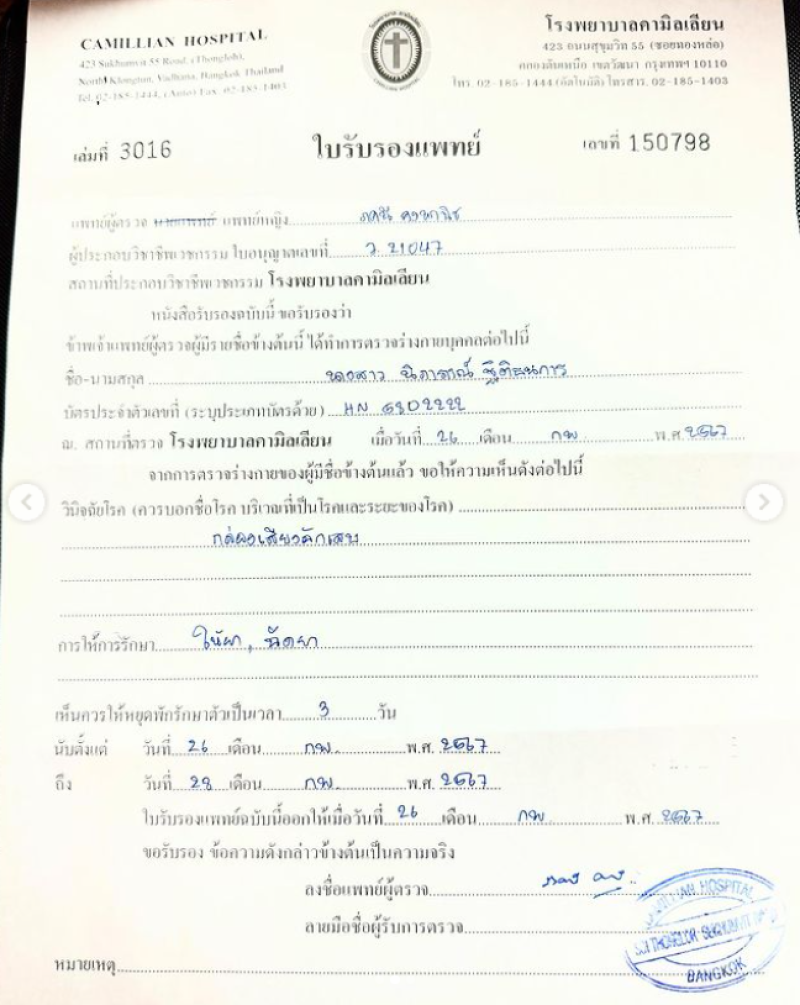 CAMILLIAN HOSPITAL
423 Sukhumvit 55 Road, (Thongloh),
North Klongton, Vadhana, Bangkok Thailand
Tel. 02-185-1444, (Auto) Fax. 02-185-1403
โรงพยาบาลคามิลเลียน
423 ถนนสุขุมวิท 55 (ซอยทองหล่อ)
คลองตันเหนือ เขตวัฒนา กรุงเทพฯ 10110
โทร 02-185-1444 (อัตโนมัติ) โทรสาร. 02-185-1403
เล่มที่ 3016
ใบรับรองแพทย์
เลขที่ 150798
แพทย์ผู้ตรวจ นายแพทย์ แพทย์หญิง
ผู้ประกอบวิชาชีพเวชกรรม ใบอนุญาตเลขที่ ว. 21047
สถานที่ประกอบวิชาชีพเวชกรรม โรงพยาบาลคามิลเลียน
หนังสือรับรองฉบับนี้ ขอรับรองว่า
ข้าพเจ้าแพทย์ผู้ตรวจผู้มีรายชื่อข้างต้นนี้ ได้ทำการตรวจร่างกายบุคคลต่อไปนี้
ชื่อ-นามสกุล นางสาว นิภาภรณ์ ฐิติธนการ
บัตรประจำตัวเลขที่ (ระบุประเภทบัตรด้วย) HN 6802222
ณ. สถานที่ตรวจ โรงพยาบาลคามิลเลียน เมื่อวันที่ 26 เดือน กพ พ.ศ. 2567
จากการตรวจร่างกายของผู้มีชื่อข้างต้นแล้ว ขอให้ความเห็นดังต่อไปนี้
วินิจฉัยโรค (ควรบอกชื่อโรค บริเวณที่เป็นโรคและระยะของโรค)
กล่องเสียงอักเสบ
การให้การรักษา ให้ยา, ฉีดยา
เห็นควรให้หยุดพักรักษาตัวเป็นเวลา 3 วัน
นับตั้งแต่ วันที่ 26 เดือน กพ. พ.ศ. 2567
ถึง วันที่ 28 เดือน กพ. พ.ศ. 2567
ใบรับรองแพทย์ฉบับนี้ออกให้เมื่อวันที่ 26 เดือน กพ พ.ศ. 2567
ขอรับรอง ข้อความดังกล่าวข้างต้นเป็นความจริง
ลงชื่อแพทย์ผู้ตรวจ
ลายมือชื่อผู้รับการตรวจ
CAMILLIAN HOSPITAL
BANGKOK
หมายเหตุ